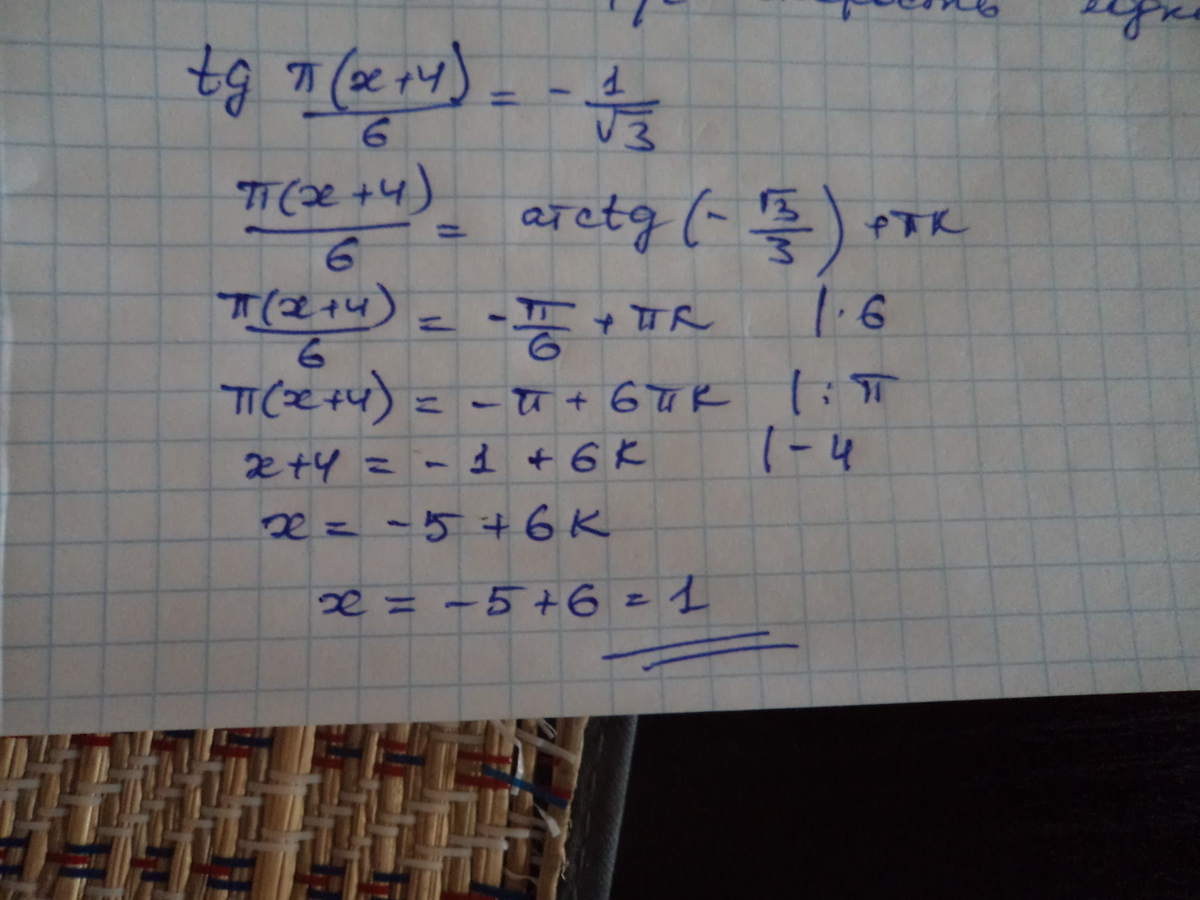 tg π(x+4)/6 = - 1/√3
π(x+4)/6 = arctg(- √3/3) + πk
π(x+4)/6 = - π/6 + πk |· 6
π(x+4) = - π + 6πk |: π
x+4 = - 1 + 6k |- 4
x = - 5 + 6k
x = - 5 + 6 = 1